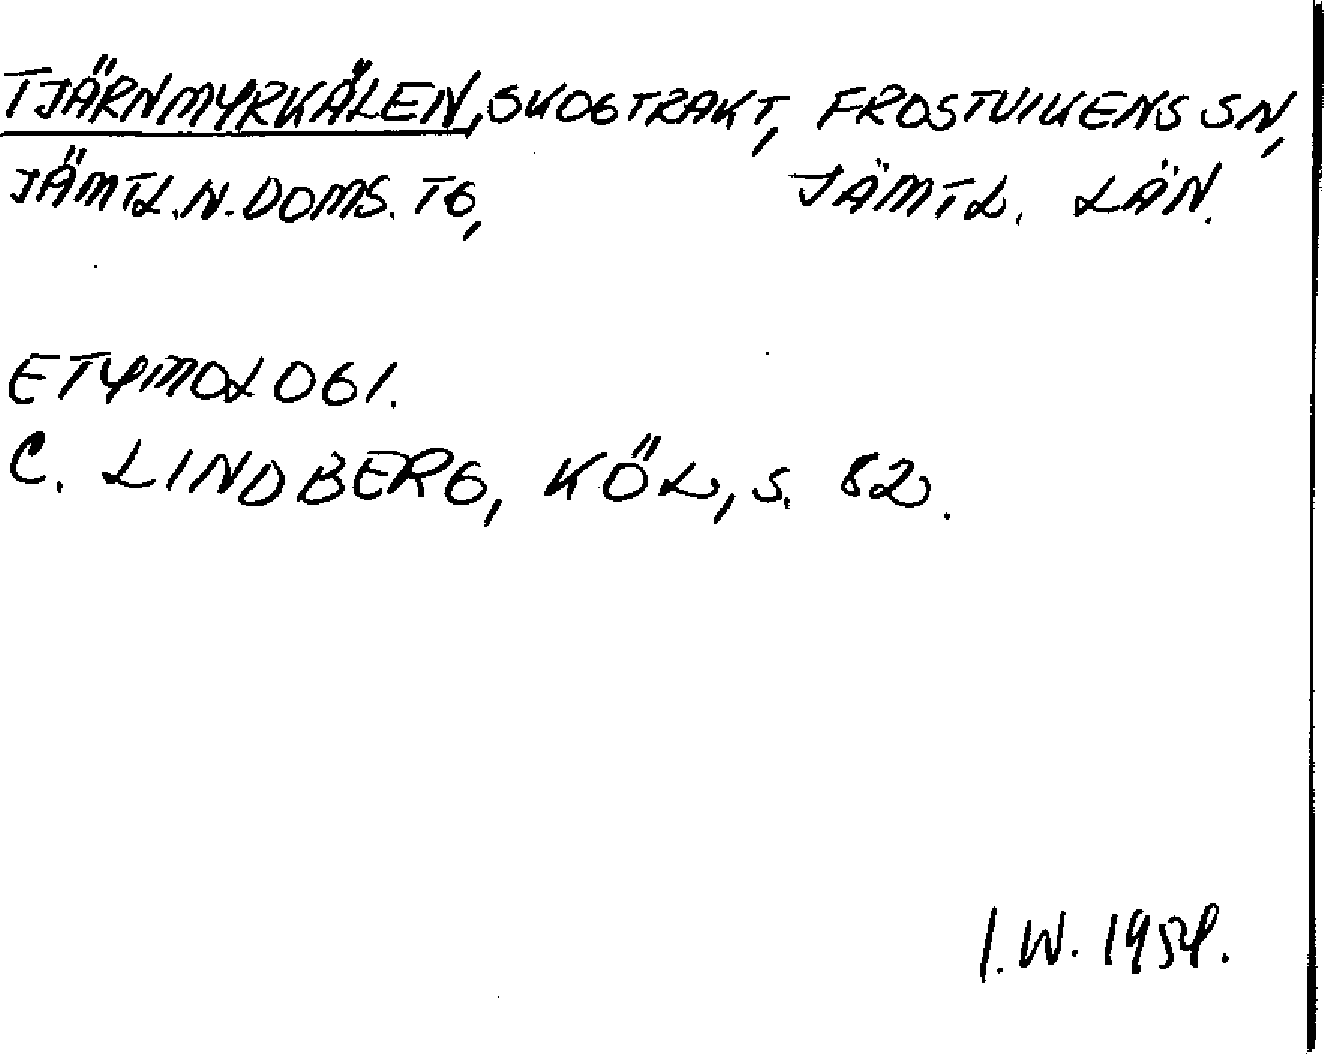 TJÄRNMYRKÄLEN, SKOGTRAKT, FROSTVIKENS SN,
JÄMTL. N. DOMS. TG, JÄMTL. LÄN.
ETYMOLOGI.
C. LINDBERG, KÖL, S. 82.
I. W. 1954.